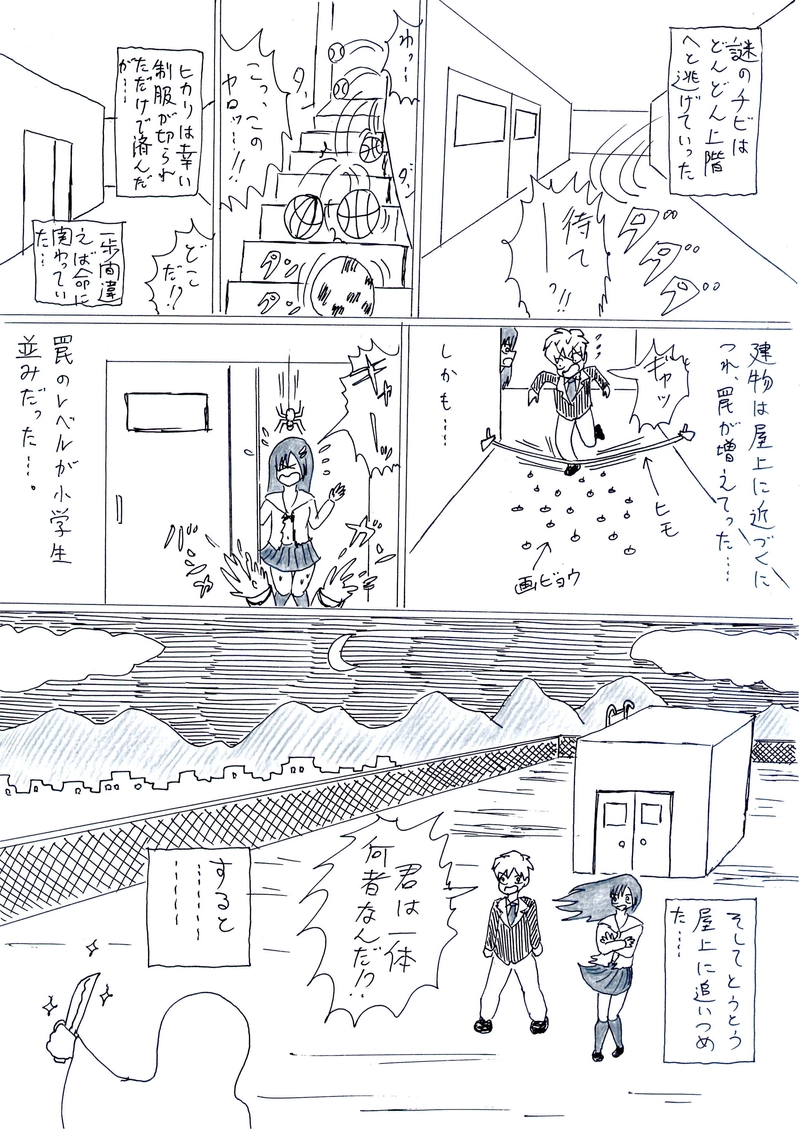 謎のチビは
どんどん上階
へと逃げていった
ダッ
ダッ
ダッ
待て
っ!!
わっ…
タン
タン
タン
タン
こっ、この
ヤロッ…!!
ヒカリは幸い
制服が切られ
ただけで済んだ
が……
どこ
だ!?
一歩間違
えば命に
関わってい
た……
建物は屋上に近づくに
つれ、罠が増えてった……
ギャッ
ヒモ
画ビョウ
しかも……
キャ
罠のレベルが小学生
並みだった……。
そしてとうとう
屋上に追いつめ
た……
君は一体
何者なんだ!?
すると